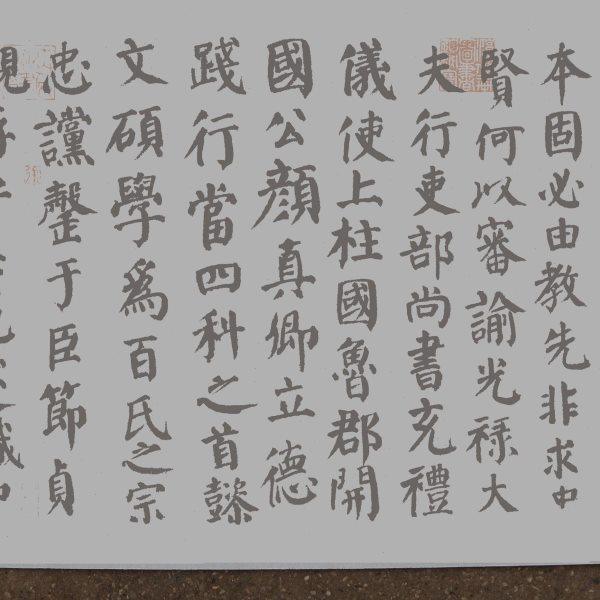 本固必由教先非求中
賢何以審諭光祿大
夫行吏部尚書充禮
儀使上柱國魯郡開
國公顏真卿立德
踐行當四科之首懿
文碩學爲百氏之宗
忠讜罄于臣節貞